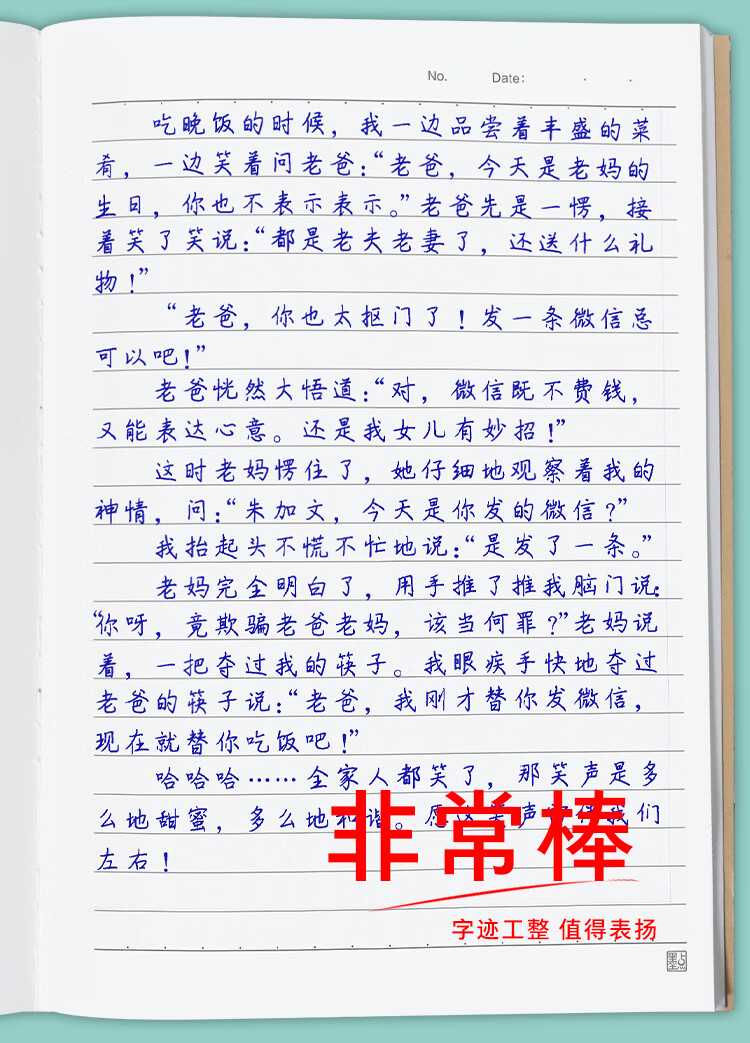 No. Date:
吃晚饭的时候，我一边品尝着丰盛的菜
肴，一边笑着问老爸：“老爸，今天是老妈的
生日，你也不表示表示。”老爸先是一愣，接
着笑了笑说：“都是老夫老妻了，还送什么礼
物！”
“老爸，你也太抠门了！发一条微信总
可以吧！”
老爸恍然大悟道：“对，微信既不费钱，
又能表达心意。还是我女儿有妙招！”
这时老妈愣住了，她仔细地观察着我的
神情，问：“朱加文，今天是你发的微信？”
我抬起头不慌不忙地说：“是发了一条。”
老妈完全明白了，用手推了推我脑门说：
“你呀，竟欺骗老爸老妈，该当何罪？”老妈说
着，一把夺过我的筷子。我眼疾手快地夺过
老爸的筷子说：“老爸，我刚才替你发微信，
现在就替你吃饭吧！”
哈哈哈……全家人都笑了，那笑声是多
么地甜蜜，多么地和谐。愿这笑声 我们
左右！
非常棒
字迹工整 值得表扬
墨点